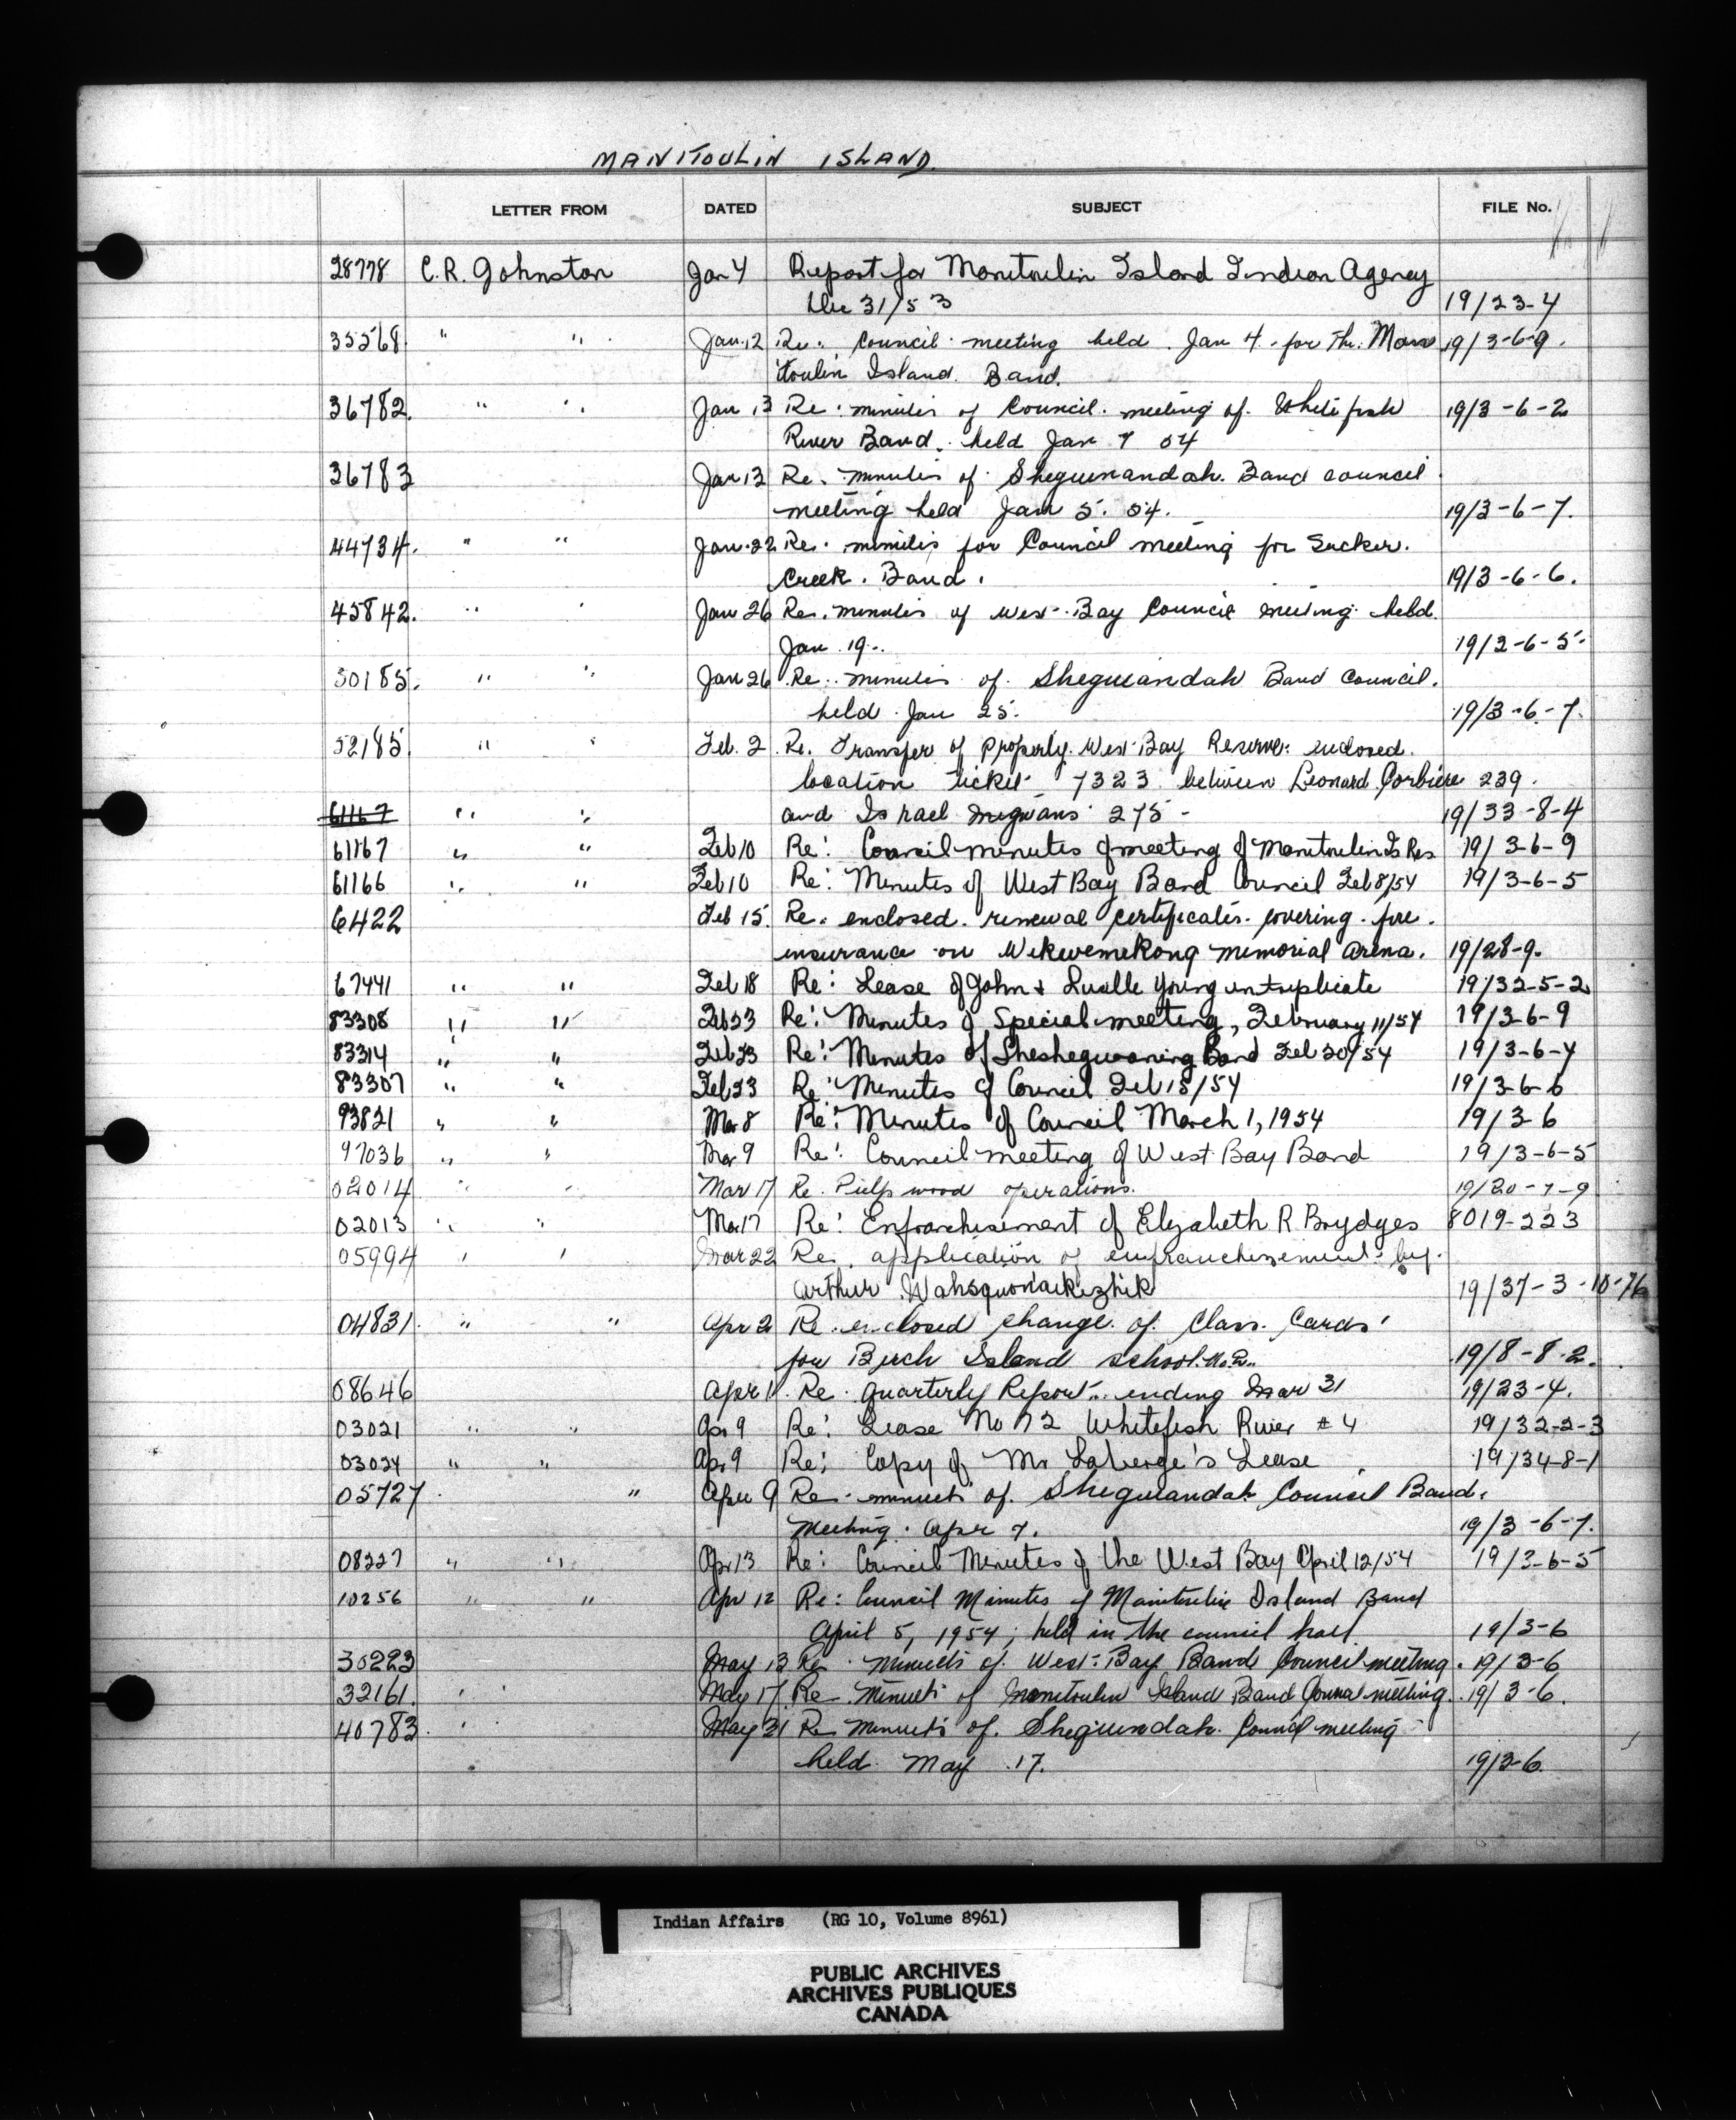 MANITOULIN ISLAND.
LETTER FROM DATED SUBJECT FILE No.
28778 C.R. Johnston Jan 4 Report for Manitoulin Island Indian Agency
Dec 31/53 19/23-4
35568 " " Jan. 12 Re. Council meeting held Jan 4 - for The Mani 19/3-6-9.
toulin Island Band.
36782. " " Jan 13 Re. minutes of Council meeting of Whitefish 19/3-6-2
River Band. held Jan 7 54
36783 Jan 13 Re. minutes of Sheguinandah. Band council
meeting held Jan 5. 54. 19/3-6-7.
44734. " " Jan. 22 Re. minutes for Council meeting for Sucker.
Creek. Band. 19/3-6-6.
45842. " " Jan 26 Re. minutes of West Bay Council meeting held.
Jan 19.. 19/3-6-5
50185. " " Jan 26 Re. minutes of Sheguiandah Band Council.
held Jan 25. 19/3-6-7.
52185. " " Feb. 2 Re. Transfer of Property. West Bay Reserve: enclosed.
location ticket 7323 between Leonard Corbiere 239.
61167 " " and Israel Migwans 275 - 19/33-8-4
61167 " " Feb 10 Re: Council minutes of meeting of Manitoulin Is Res. 19/3-6-9
61166 " " Feb 10 Re: Minutes of West Bay Band Council Feb 8/54 19/3-6-5
6422 Feb 15. Re. enclosed. renewal certificates. covering. fire.
insurance on Wikwemekong memorial arena. 19/28-9.
67441 " " Feb 18 Re: Lease of John & Luelle Young in triplicate 19/32-5-2
83308 " " Feb 23 Re: Minutes of Special meeting, February 11/54 19/3-6-9
83314 " " Feb 23 Re: Minutes of Sheshegwaning Band Feb 20/54 19/3-6-4
83307 " " Feb 23 Re: Minutes of Council Feb 15/54 19/3-6-6
93821 " " Mar 8 Re: Minutes of Council March 1, 1954 19/3-6
97036 " " Mar 9 Re: Council meeting of West Bay Band 19/3-6-5
02014 " " Mar 17 Re. Pulp wood operations. 19/20-7-9
02013 " " Mar 17 Re: Enfranchisement of Elizabeth R Brydges 8019-223
05994 " " Mar 22 Re. application of enfranchisement by.
Arthur Wahsquonaikezhik 19/37-3-10-76
04831. " " Apr 2 Re. enclosed change of Class. Cards'
for Birch Island school. 19/8-8-2.
08646 Apr 1. Re. quarterly Report.. ending Mar 31 19/23-4.
03021 " " Apr 9 Re: Lease No 72 Whitefish River # 4 19/32-2-3
03024 " " Apr 9 Re: Copy of Mr Laberge's Lease 19/34-8-1
05727. " Apr 9 Re. minuets of. Sheguiandah Council Band.
Meeting. Apr 7. 19/3-6-7.
08227 " " Apr 13 Re: Council Minutes of the West Bay April 12/54 19/3-6-5
10256 " " Apr 12 Re: Council Minutes of Manitoulin Island Band
April 5, 1954; held in the council hall 19/3-6
30223 May 13 Re. Minuets of. West. Bay Band Council meeting. 19/3-6
32161. " " May 17. Re. Minuets of Manitoulin Island Band Council meeting. 19/3-6.
40783. " May 31 Re minuets of. Sheguindah. Council meeting
held May 17. 19/3-6.
Indian Affairs (RG 10, Volume 8961)
PUBLIC ARCHIVES
ARCHIVES PUBLIQUES
CANADA